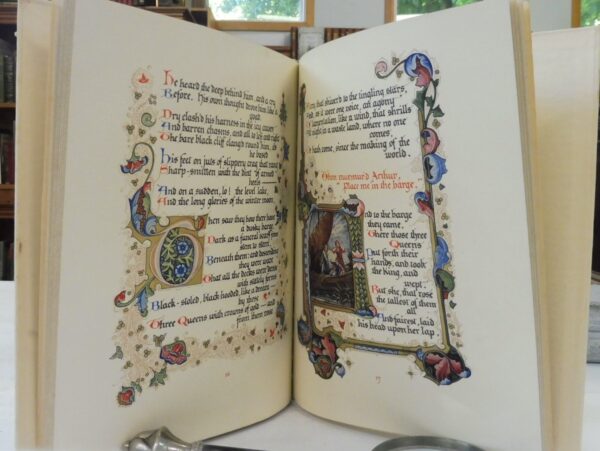 He heard the deep behind him, and a cry
Before. His own thought drove him like a
Dry clash'd his harness in the icy caves
And barren chasms, and all to left and right
The bare black cliff clang'd round him, as
he based
His feet on juts of slippery crag that rang
Sharp-smitten with the dint of armed
heels—
And on a sudden, lo! the level lake,
And the long glories of the winter moon.
Then saw they how there hove
a dusky barge
Dark as a funeral scarf from
stem to stern,
Beneath them: and descending
they were ware
That all the decks were dense
with stately forms
Black-stoled, black-hooded, like a dream—
by these
Three Queens with crowns of gold— and
from them rose
12
A cry that shiver'd to the tingling stars,
And, as it were one voice, an agony
Of lamentation, like a wind, that shrills
All night in a waste land, where no one
comes,
Or hath come, since the making of the
world.
Then murmur'd Arthur,
Place me in the barge,
And to the barge
they came,
There those three
Queens
Put forth their
hands, and took
the King, and
wept.
But she, that rose
the tallest of them
all
And fairest, laid
his head upon her lap
13